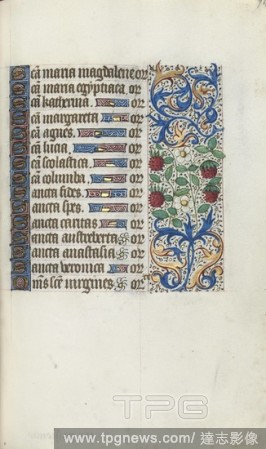 cā maria magdalene or
cā maria egyptiaca. or
cā katherina. or
cā margareta or
cā agnes. or
cā lucia. or
cā scolastica. or
cā columba. or
ancta fides. or
ancta spes. or
ancta caritas or
ancta austreberta or
ancta anastasia. or
ancta veronica or
mēs scē virgines. or
TPG
www.tpgnews.com / 達志影像